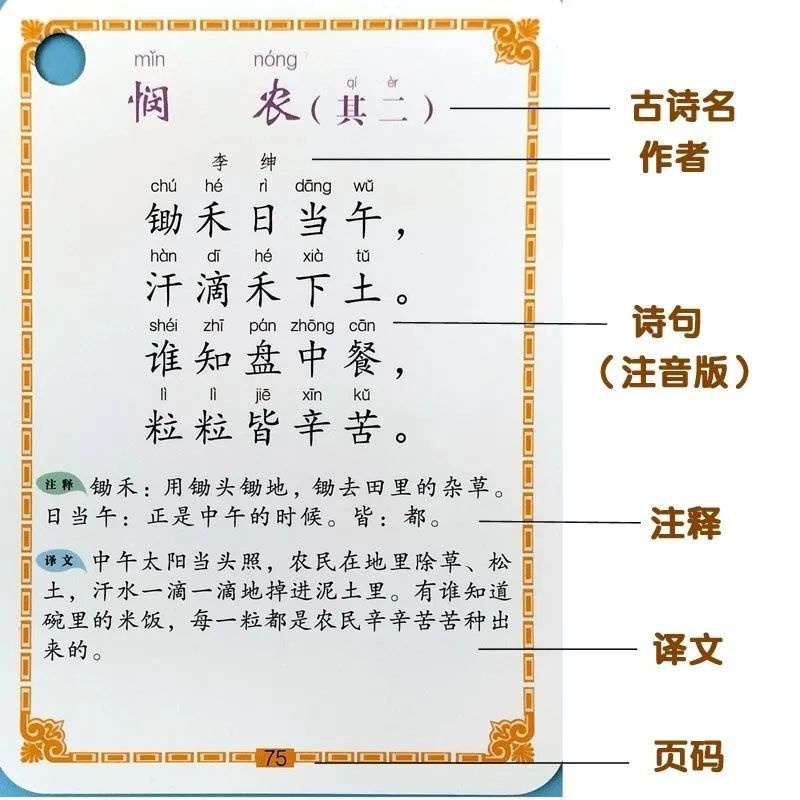 mǐn nóng
qí èr
悯 农（其二）
古诗名
李 绅
作者
chú hé rì dāng wǔ
锄禾日当午，
hàn dī hé xià tǔ
汗滴禾下土。
shéi zhī pán zhōng cān
谁知盘中餐，
诗句
（注音版）
lì lì jiē xīn kǔ
粒粒皆辛苦。
注释 锄禾：用锄头锄地，锄去田里的杂草。
日当午：正是中午的时候。皆：都。
注释
译文 中午太阳当头照，农民在地里除草、松
土，汗水一滴一滴地掉进泥土里。有谁知道
碗里的米饭，每一粒都是农民辛辛苦苦种出
来的。
译文
75
页码